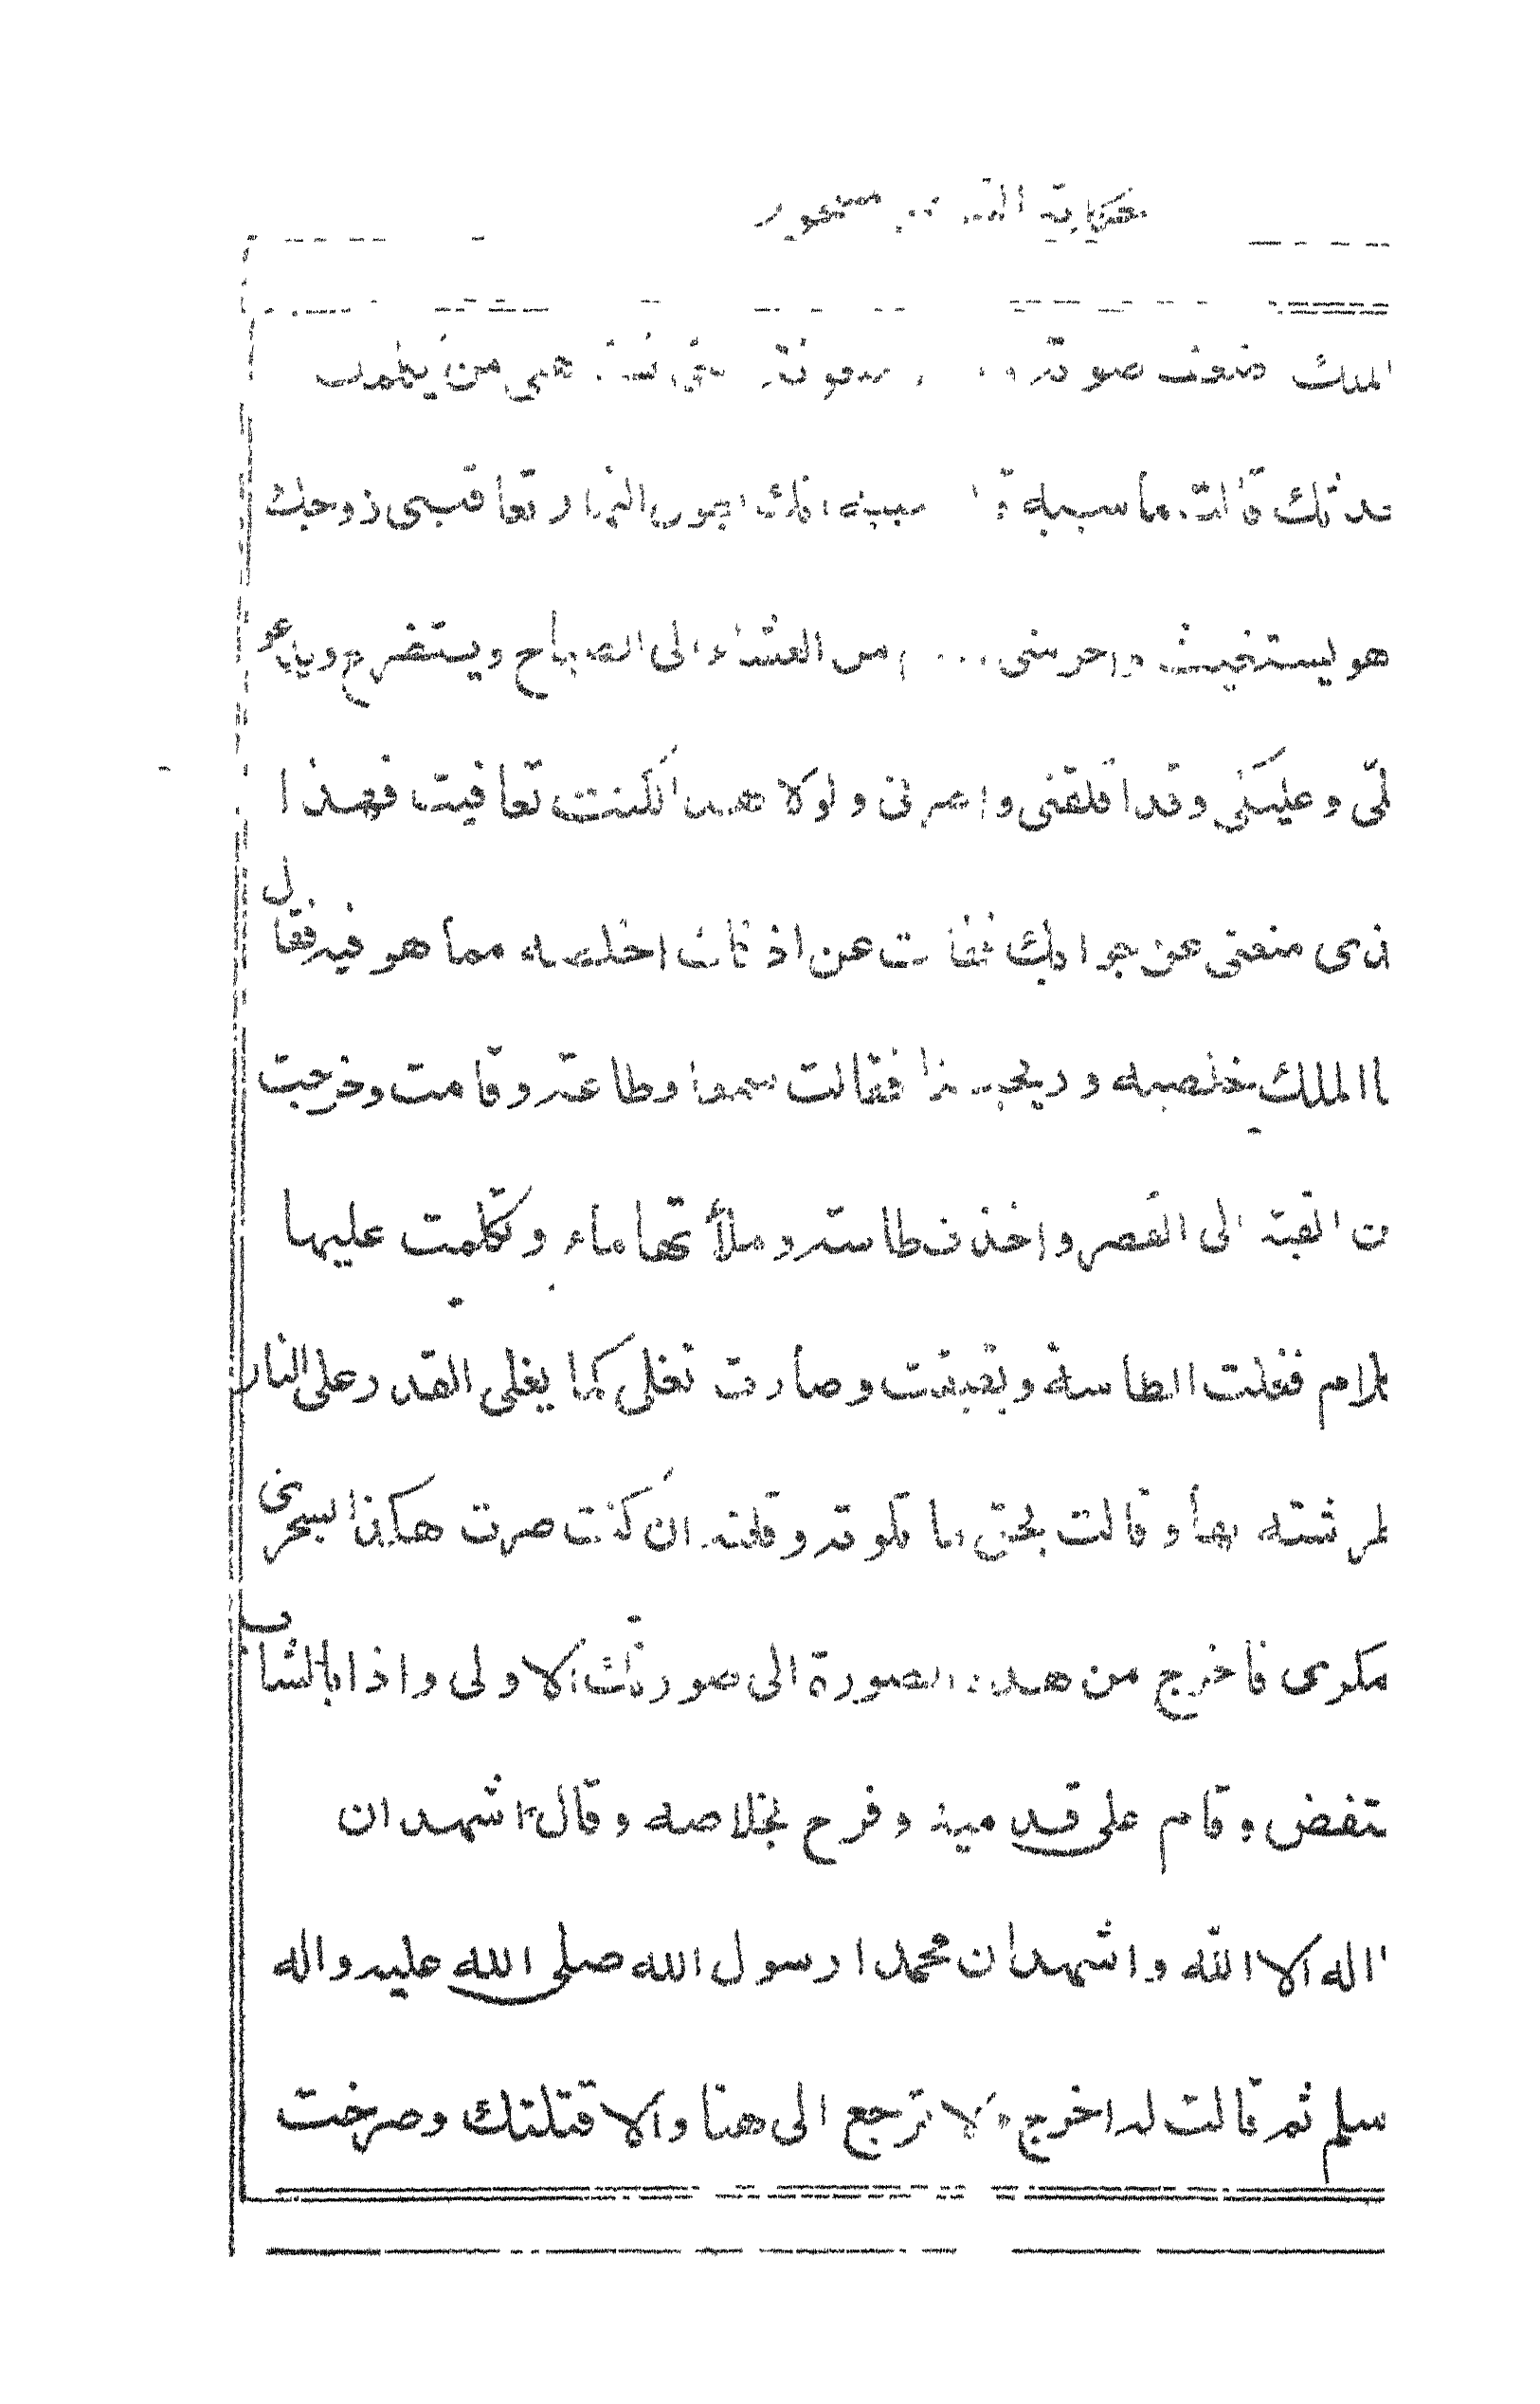 حكاية مسحور
الملك ضعف صوته من يكلمك
قالت ما سببه سببه انك النهار تعاقبى زوجك
هو يستغيث واحرمنى من العشاء الى الصباح ويتضرع ويدعو
لّى وعليكى وقد اقلقنى واضرنى ولولا هذا لكنت تعافيت فهذا
لذى منعنى عن جوابك فقالت عن اذنك اخلصه مما هو فيه فقال
ها الملك خلصيه فقالت سمعا وطاعة وقامت وخرجت
من القبة الى القصر واخذت طاسة وملأتها ماء وتكلمت عليها
كلام فغلت الطاسة وبقبقت وصارت تغلى كما يغلى القدر على النار
ثم رشته بها وقالت بحق ما تلوته وقلته ان كنت صرت هكذا بسحرى
مكرى فاخرج من هذه الصورة الى صورتك الاولى واذا بالشاب
نتفض وقام على قدميه وفرح بخلاصه وقال اشهد ان
ا اله الا الله واشهد ان محمدا رسول الله صلى الله عليه واله
سلم ثم قالت له اخرج ولا ترجع الى هنا والا قتلتك وصرخت